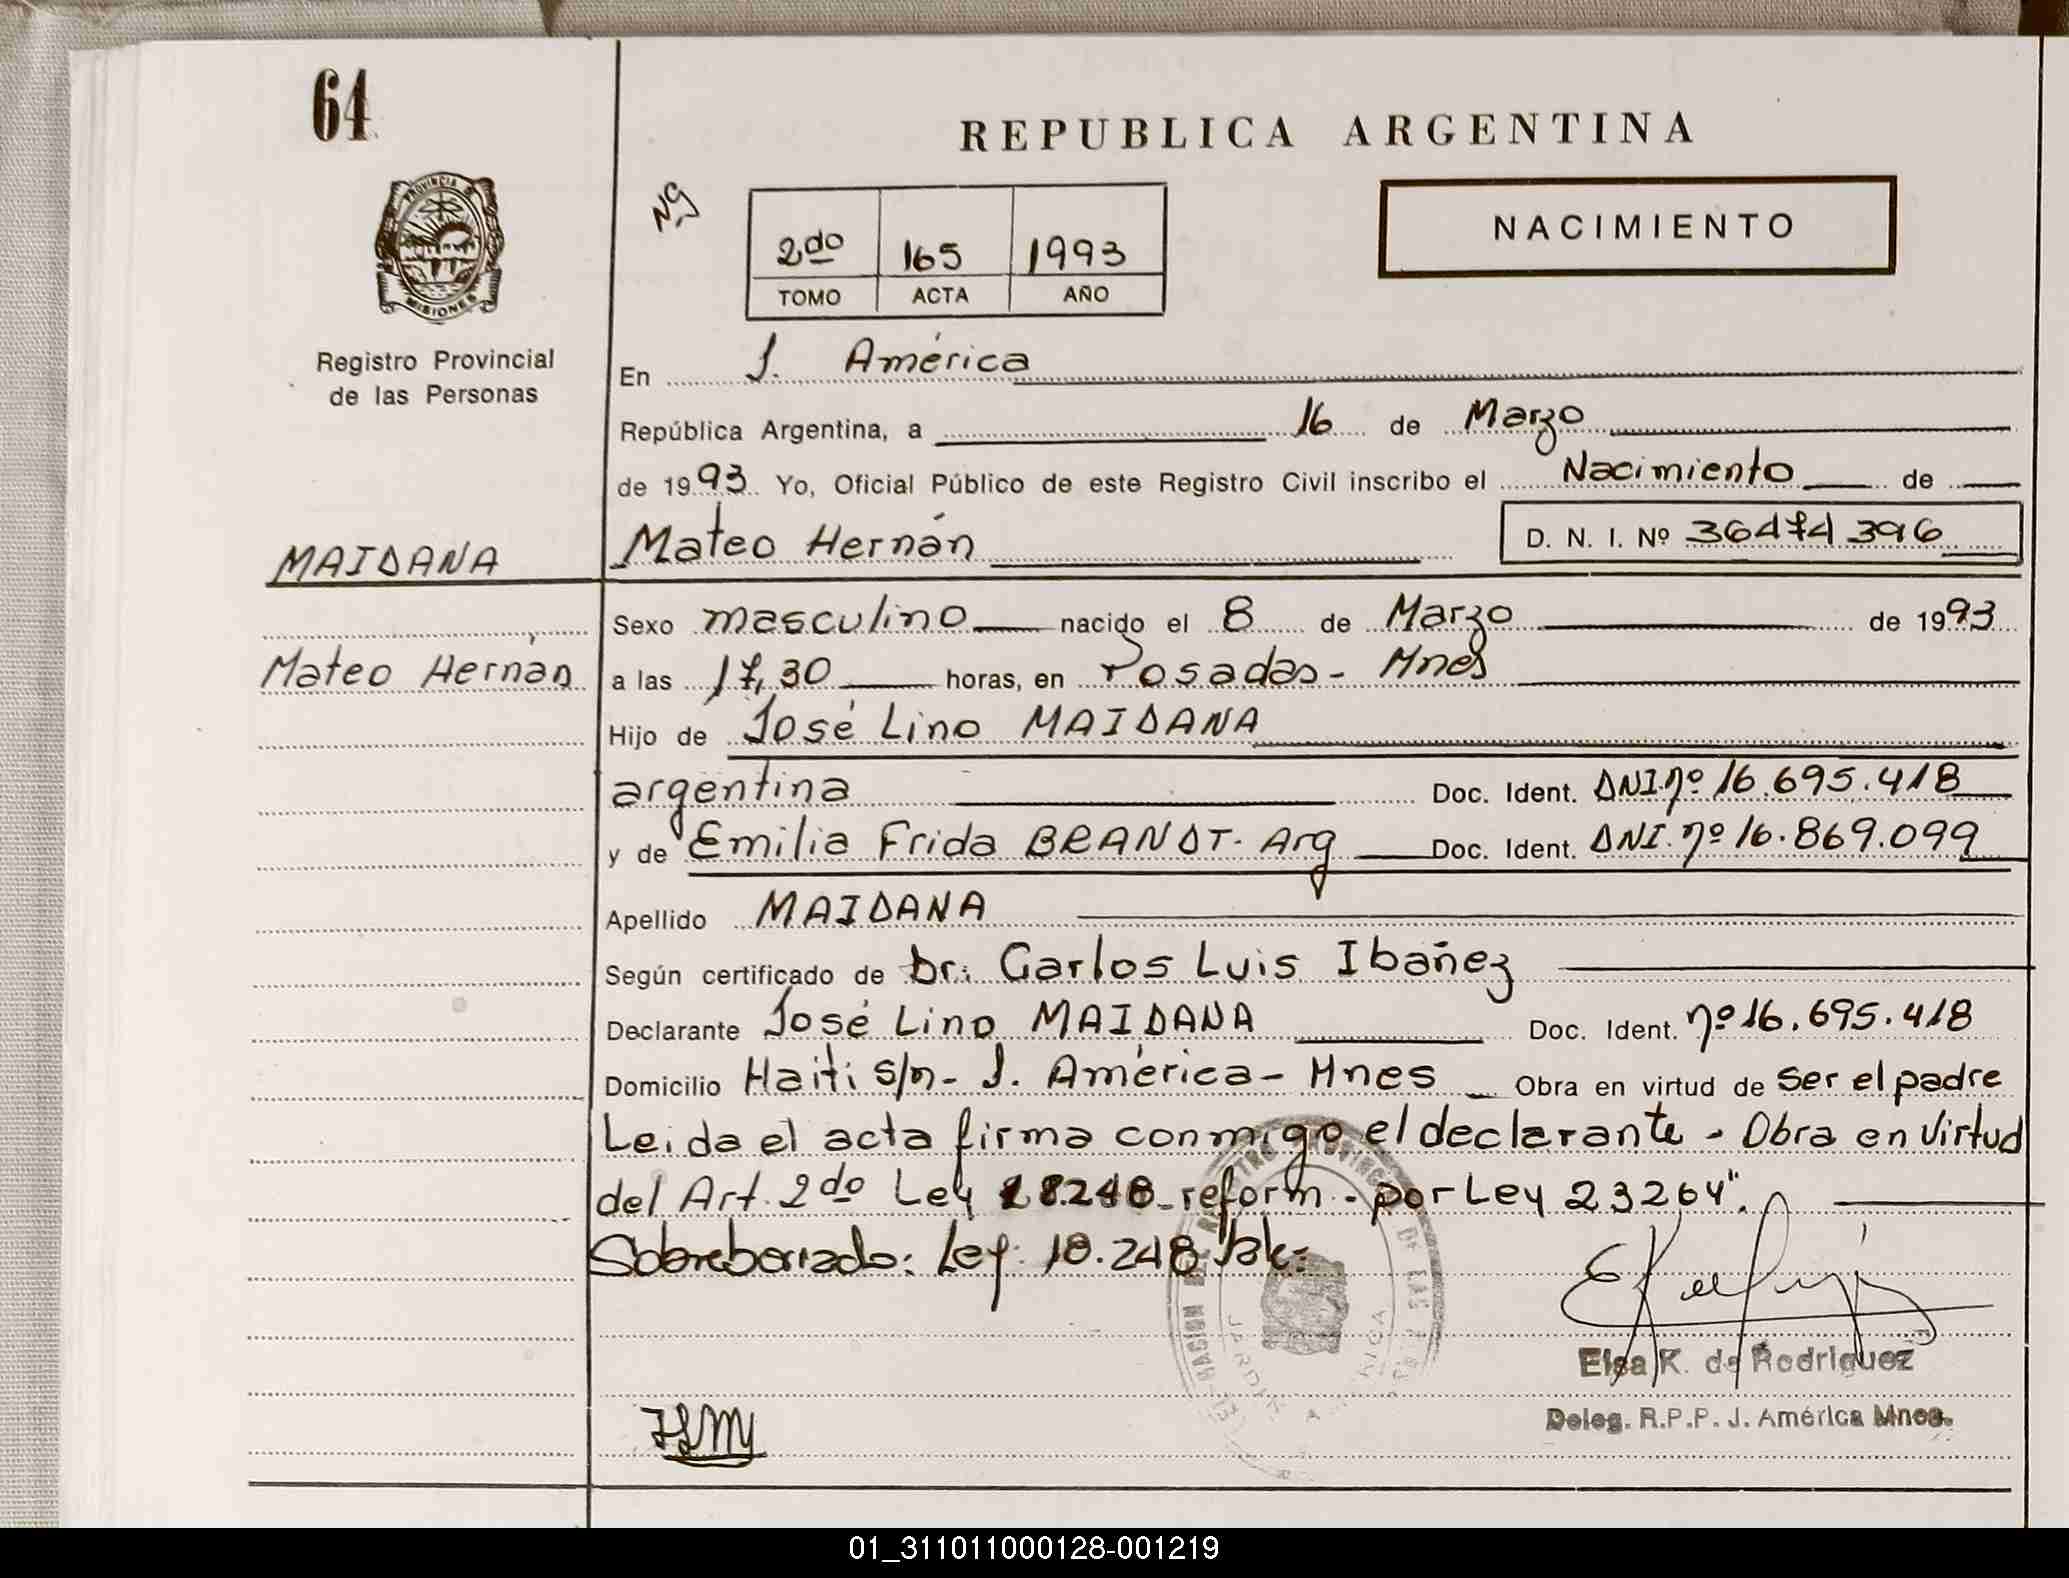 64
REPUBLICA ARGENTINA
PROVINCIA D
MISIONES
Ng
NACIMIENTO
2do 165 1993
TOMO ACTA AÑO
Registro Provincial
de las Personas
En J. América
República Argentina, a 16 de Marzo
de 1993 Yo, Oficial Público de este Registro Civil inscribo el Nacimiento de
MAIDANA Mateo Hernán D. N. I. Nº 36474396
Mateo Hernán
Sexo masculino nacido el 8 de Marzo de 1993
a las 17,30 horas, en Posadas - Mnes
Hijo de José Lino MAIDANA
argentina Doc. Ident. DNI.nº 16.695.418
y de Emilia Frida BRANDT. Arg Doc. Ident. DNI.nº 16.869.099
Apellido MAIDANA
Según certificado de Dr. Carlos Luis Ibañez
Declarante José Lino MAIDANA Doc. Ident. nº 16.695.418
Domicilio Haití s/n - J. América - Mnes Obra en virtud de ser el padre
Leida el acta firma conmigo el declarante - Obra en virtud
del Art. 2do Ley 18.248 - reform. por Ley 23264".
Sobreborrado: Ley: 18.248 Vale:
Elsa K. de Rodriguez
Deleg. R.P.P. J. América Mnes.
JLM
01_311011000128-001219